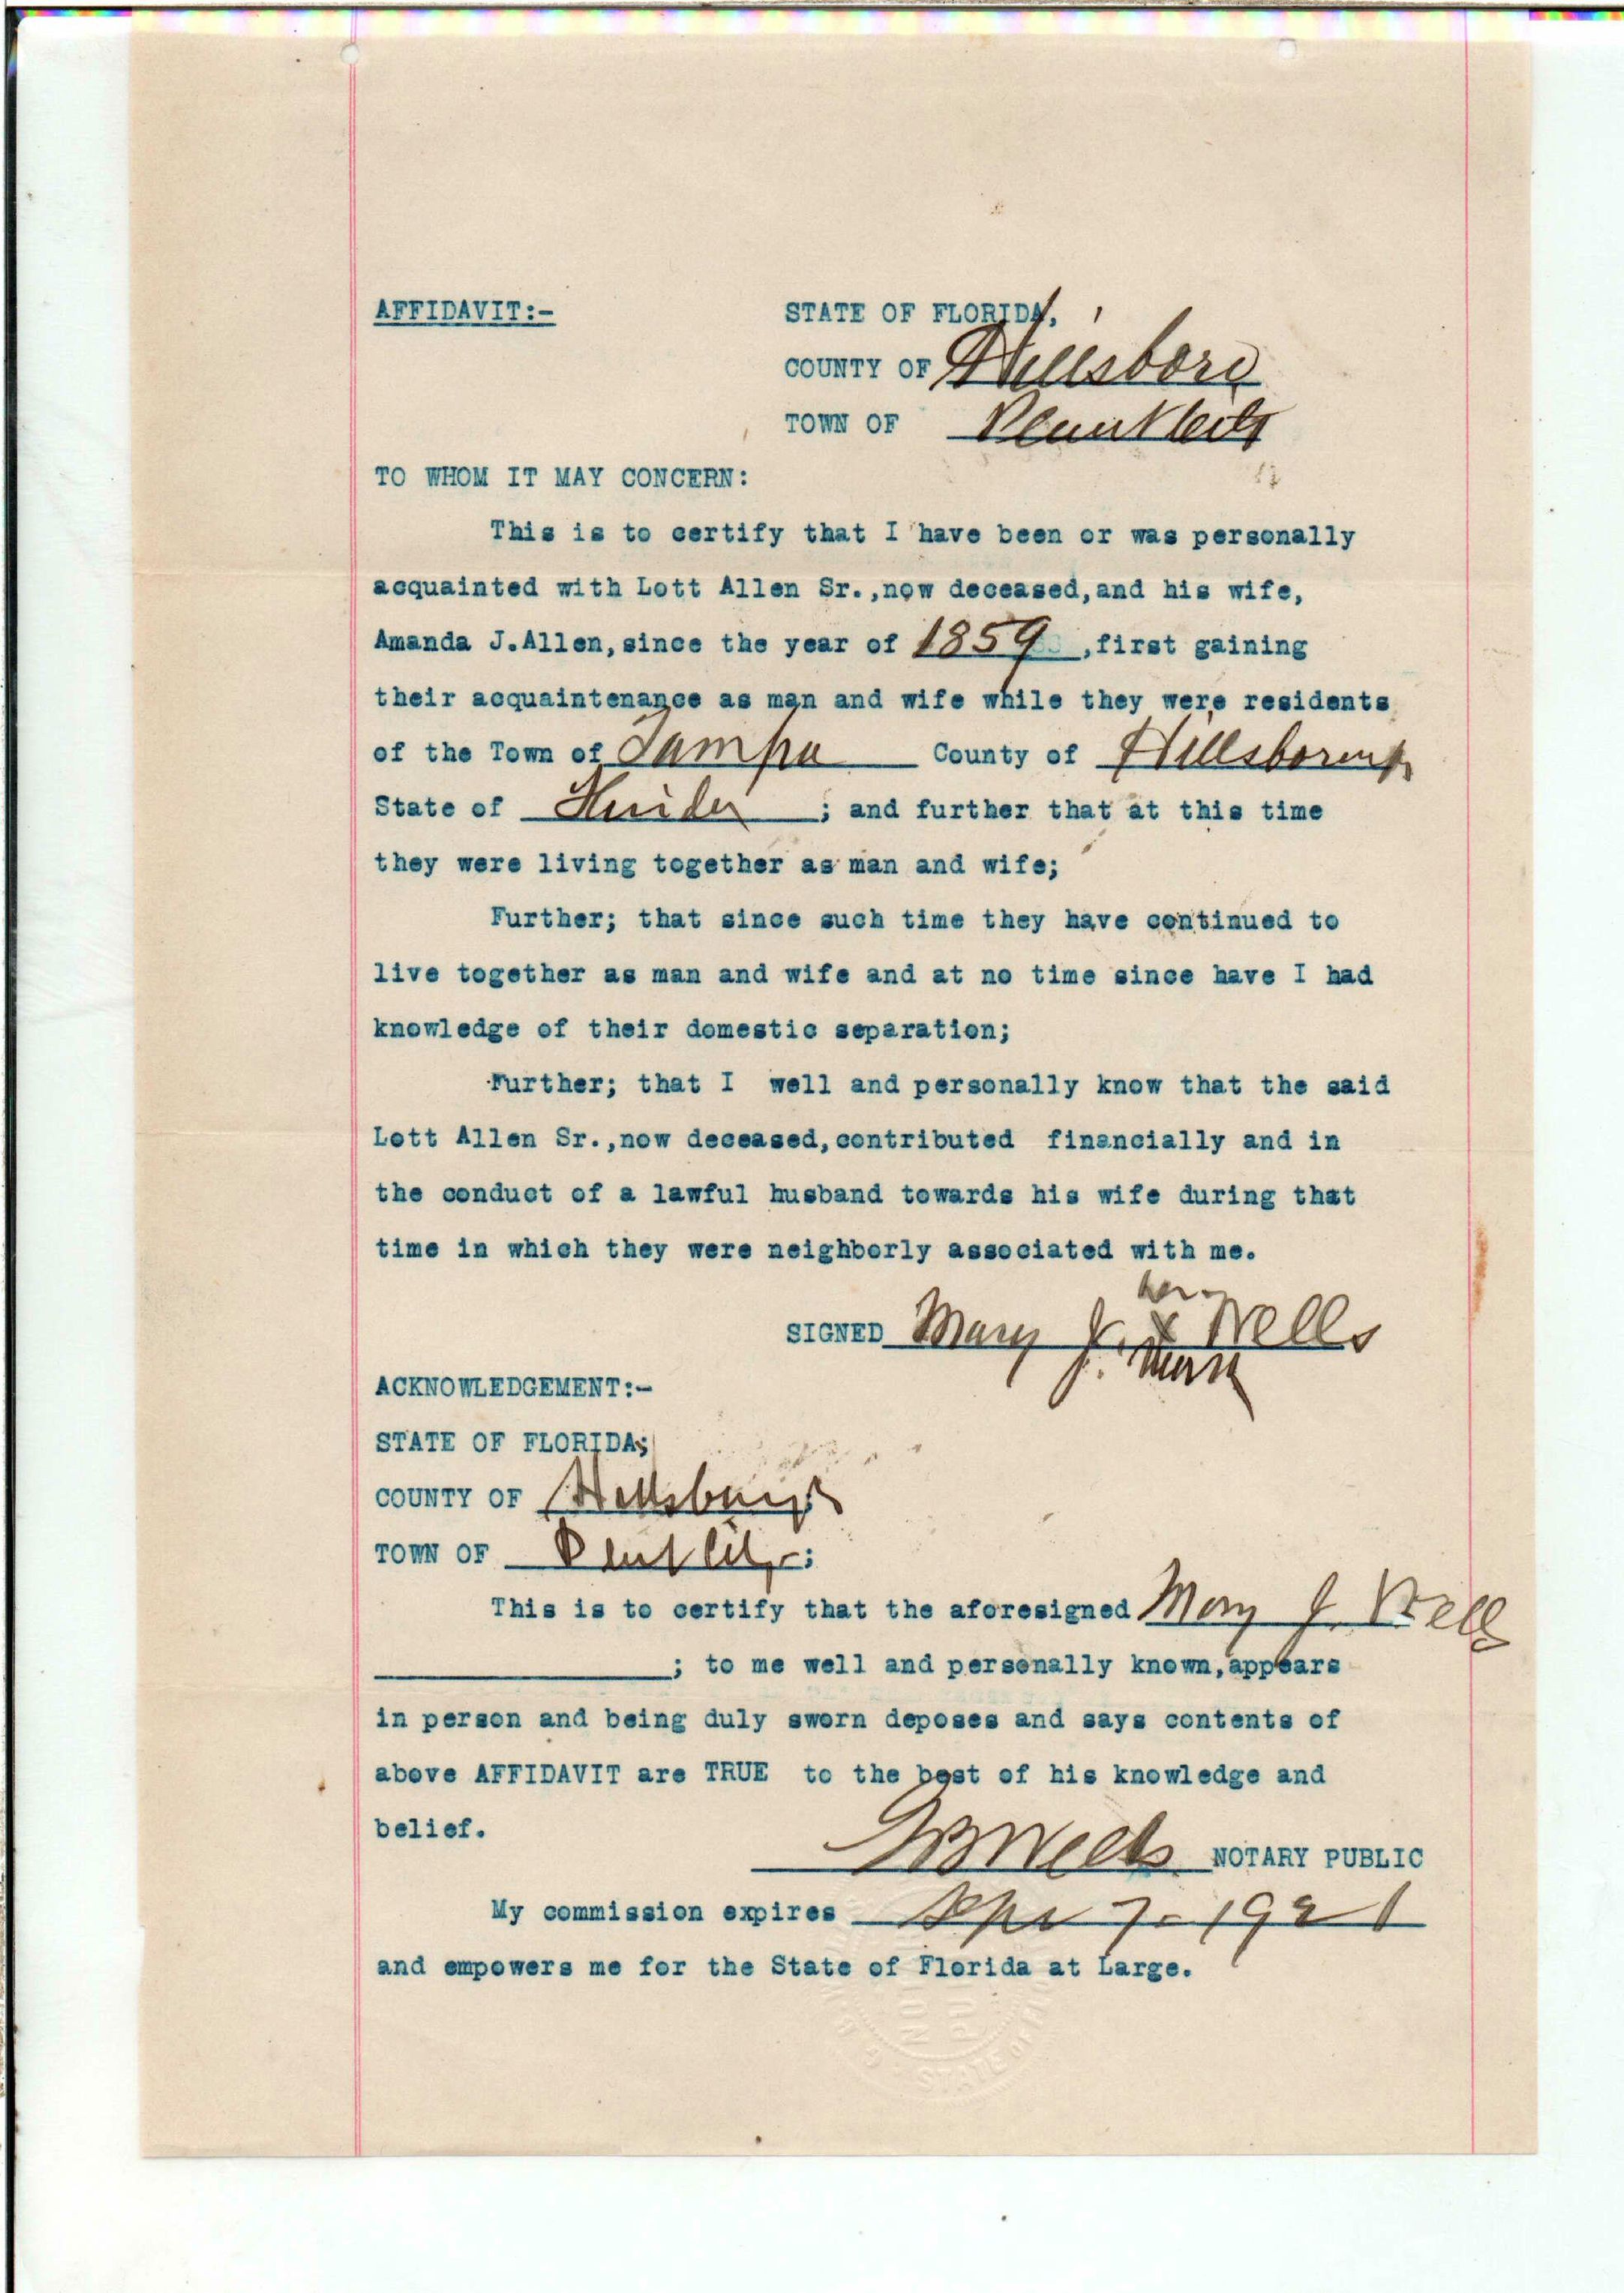 AFFIDAVIT:- STATE OF FLORIDA,
COUNTY OF Hillsboro
TOWN OF Plant City
TO WHOM IT MAY CONCERN:
This is to certify that I have been or was personally
acquainted with Lott Allen Sr.,now deceased,and his wife,
Amanda J.Allen,since the year of 1859 ,first gaining
their acquaintenance as man and wife while they were residents
of the Town of Tampa County of Hillsborough
State of Florida ; and further that at this time
they were living together as man and wife;
Further; that since such time they have continued to
live together as man and wife and at no time since have I had
knowledge of their domestic separation;
Further; that I well and personally know that the said
Lott Allen Sr.,now deceased,contributed financially and in
the conduct of a lawful husband towards his wife during that
time in which they were neighborly associated with me.
her
SIGNED Mary J. X Wells
mark
ACKNOWLEDGEMENT:-
STATE OF FLORIDA;
COUNTY OF Hillsborough
TOWN OF Plant City ;
This is to certify that the aforesigned Mary J. Wells
; to me well and personally known,appears
in person and being duly sworn deposes and says contents of
above AFFIDAVIT are TRUE to the best of his knowledge and
belief.
Wells NOTARY PUBLIC
My commission expires Apr 7-1921
and empowers me for the State of Florida at Large.
STATE OF